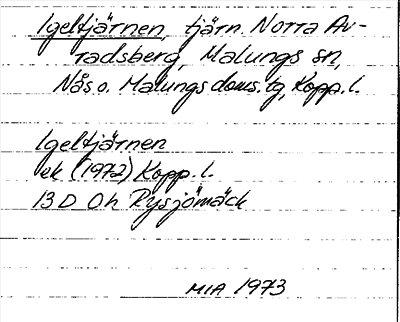 Igeltjärnen, tjärn. Norra Av-
radsberg, Malungs sn,
Nås o. Malungs doms. tg, Kopp. l.
Igeltjärnen
ek (1972) Kopp. l.
13 D 0h Rysjömäck
MIA 1973